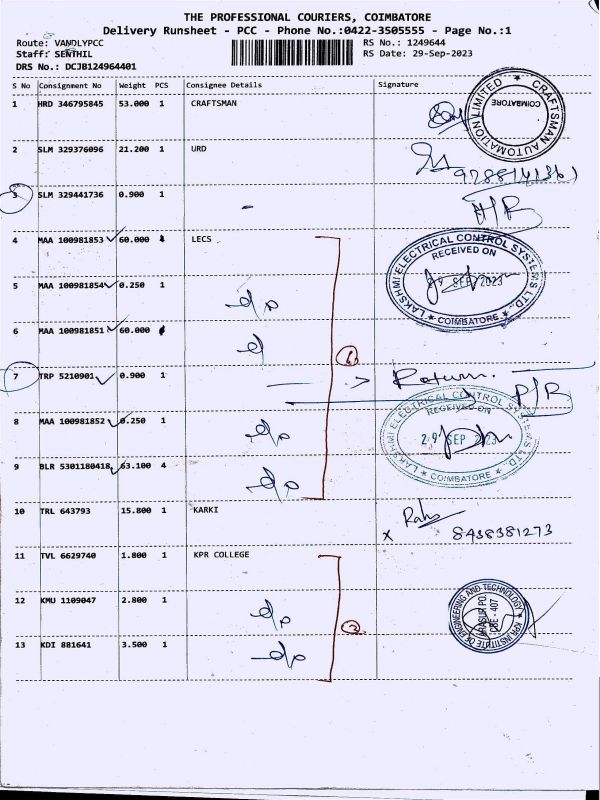 THE PROFESSIONAL COURIERS, COIMBATORE
Delivery Runsheet - PCC - Phone No.:0422-3505555 - Page No.:1
Route: VANDLYPCC RS No.: 1249644
Staff: SENTHIL RS Date: 29-Sep-2023
DRS No.: DCJB124964401
S No Consignment No Weight PCS Consignee Details Signature
1 HRD 346795845 53.000 1 CRAFTSMAN
CRAFTSMAN AUTOMATION LIMITED
COIMBATORE
2 SLM 329376096 21.200 1 URD
9788141361
3 SLM 329441736 0.900 1 -
4 MAA 100981853 60.000 LECS
LAKSHMI ELECTRICAL CONTROL SYSTEMS LTD.
RECEIVED ON
29 SEP 2023
COIMBATORE
5 MAA 100981854 0.250 1 do
6 MAA 100981851 60.000 d
7 TRP 5210901 0.900 1 Return. P/R
8 MAA 100981852 0.250 1 do
LAKSHMI ELECTRICAL CONTROL SYSTEMS LTD.
RECEIVED ON
29 SEP 2023
COIMBATORE
9 BLR 5301180418 63.100 4 do
10 TRL 643793 15.800 1 KARKI
x 8438381273
11 TVL 6629740 1.800 1 KPR COLLEGE
12 KMU 1109047 2.800 1 do
KPR INSTITUTE OF ENGINEERING AND TECHNOLOGY
ARASUR PO.
CBE - 407
13 KDI 881641 3.500 1 do